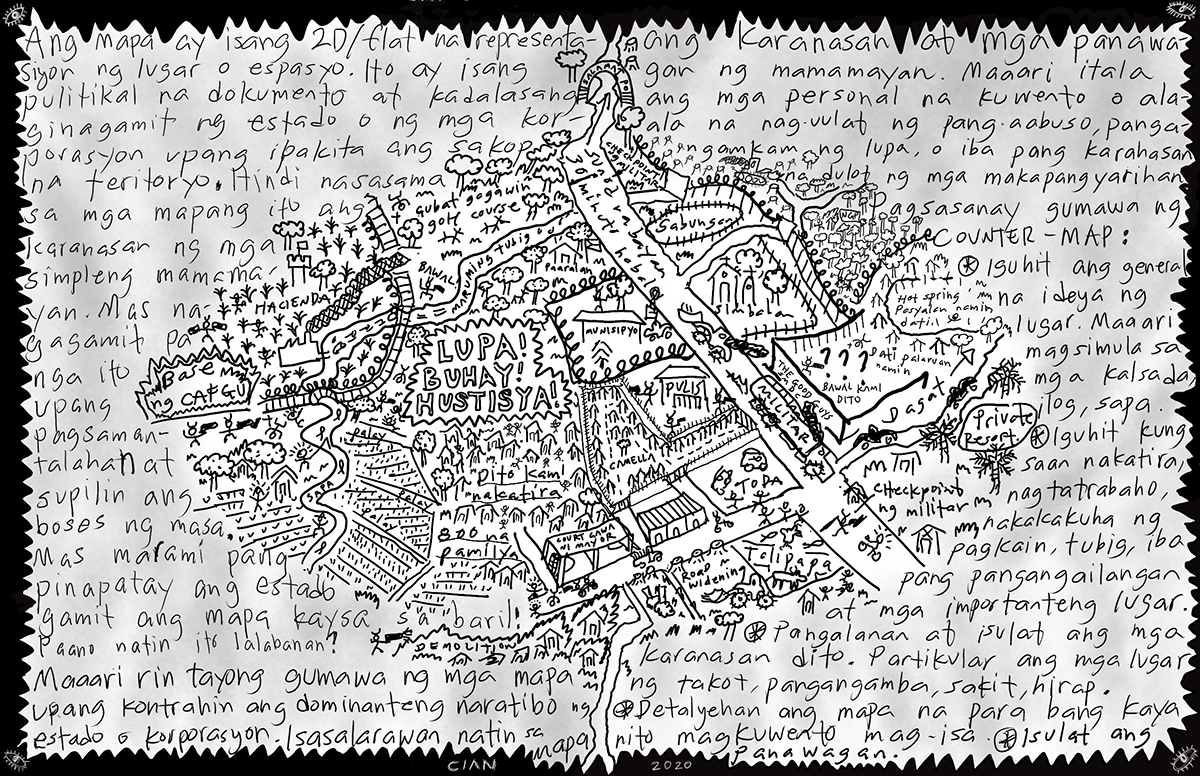 Ang mapa ay isang 2D/flat na representa-
siyon ng lugar o espasyo. Ito ay isang
pulitikal na dokumento at kadalasang
ginagamit ng estado o ng mga kor-
porasyon upang ipakita ang sakop
na teritoryo. Hindi nasasama
sa mga mapang ito ang
karanasan ng mga
simpleng mamama-
yan. Mas na-
gagamit pa
nga ito
upang
pagsaman-
talahan at
supilin ang
boses ng masa.
Mas marami pang
pinapatay ang estado
gamit ang mapa kaysa sa baril!
Paano natin ito lalabanan?
Maaari rin tayong gumawa ng mga mapa
upang kontrahin ang dominanteng naratibo ng
estado o korporasyon. Isasalarawan natin sa mapa
ang karanasan at mga panawa-
gan ng mamamayan. Maaari itala
ang mga personal na kuwento o ala-
ala na nag-uulat ng pang-aabuso, panga-
ngamkam ng lupa, o iba pang karahasan
na dulot ng mga makapangyarihan.
Pagsasanay gumawa ng
COUNTER-MAP:
Iguhit ang general
na ideya ng
lugar. Maaari
magsimula sa
mga kalsada,
ilog, sapa.
Iguhit kung
saan nakatira,
nagtatrabaho,
nakakakuha ng
pagkain, tubig, iba
pang pangangailangan
at mga importanteng lugar.
Pangalanan at isulat ang mga
karanasan dito. Partikular ang mga lugar
ng takot, pangangamba, sakit, hirap.
Detalyehan ang mapa na para bang kaya
nito magkuwento mag-isa. Isulat ang
panawagan.
gubat gagawin
golf course
Sabungan
BAWAL
Paaralan
Simbahan
Hot spring
Pasyalan namin
dati!
HACIENDA
MUNISIPYO
LUPA!
BUHAY!
HUSTISYA!
Base M
ng CAFGU
???
Dati palaruan
namin
BAWAL KAMI
DITO
THE GOOD GUYS
MILITAR
PULIS
Dagat
Private
Resort
Palay
CAMELLA
Dito kami
nakatira
800 na
pamilya
SAPA
TODA
Checkpoint
ng militar
COURT GAWA
NI MAYOR
Road
Widening
Talipapa
DEMOLITION
CIAN 2020